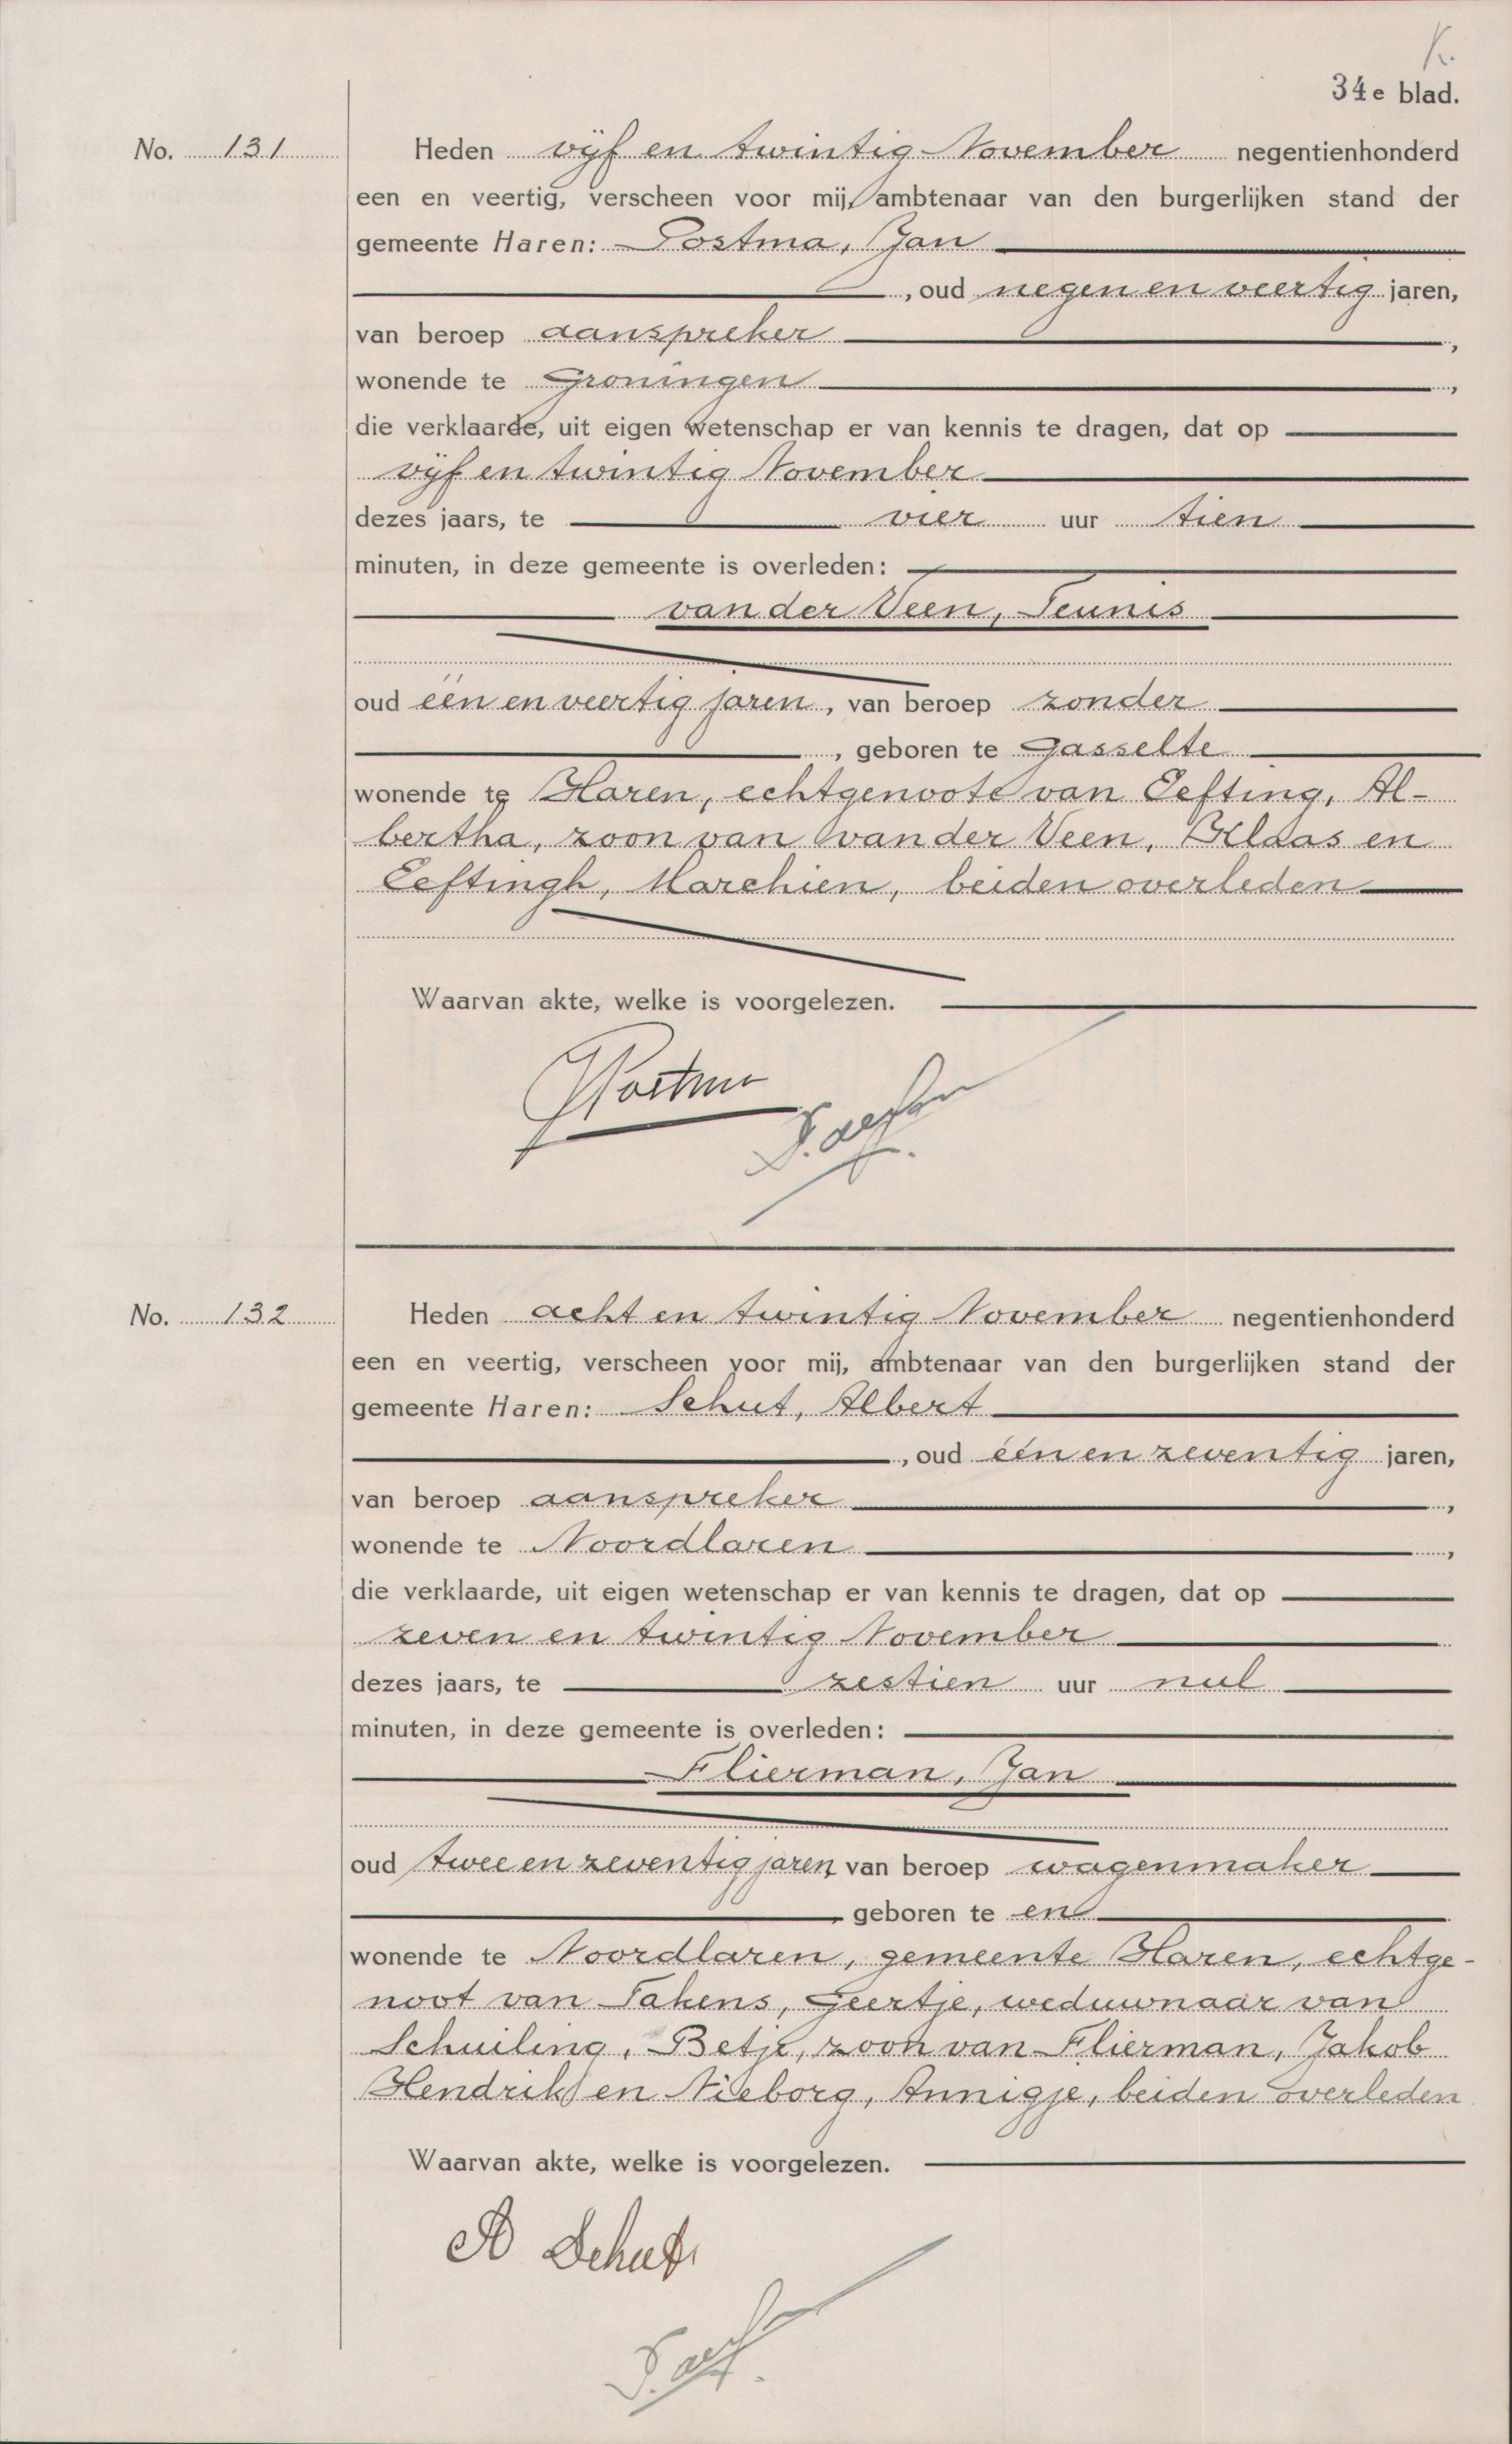 K.
34e blad.
No. 131
Heden vijf en twintig November negentienhonderd
een en veertig, verscheen voor mij, ambtenaar van den burgerlijken stand der
gemeente Haren: Postma, Jan
, oud negen en veertig jaren,
van beroep aanspreker ,
wonende te Groningen ,
die verklaarde, uit eigen wetenschap er van kennis te dragen, dat op
vijf en twintig November
dezes jaars, te vier uur tien
minuten, in deze gemeente is overleden:
van der Veen, Teunis
oud één en veertig jaren, van beroep zonder
, geboren te Gasselte
wonende te Haren, echtgenoote van Eefting, Al-
bertha, zoon van van der Veen, Klaas en
Eeftingh, Marchien, beiden overleden
Waarvan akte, welke is voorgelezen.
JPostma
No. 132
Heden acht en twintig November negentienhonderd
een en veertig, verscheen voor mij, ambtenaar van den burgerlijken stand der
gemeente Haren: Schut, Albert
, oud één en zeventig jaren,
van beroep aanspreker ,
wonende te Noordlaren ,
die verklaarde, uit eigen wetenschap er van kennis te dragen, dat op
zeven en twintig November
dezes jaars, te zestien uur nul
minuten, in deze gemeente is overleden:
Flierman, Jan
oud twee en zeventig jaren, van beroep wagenmaker
, geboren te en
wonende te Noordlaren, gemeente Haren, echtge-
noot van Takens, Geertje, weduwnaar van
Schuiling, Betje, zoon van Flierman, Jakob
Hendrik en Nieborg, Annigje, beiden overleden
Waarvan akte, welke is voorgelezen.
A Schut